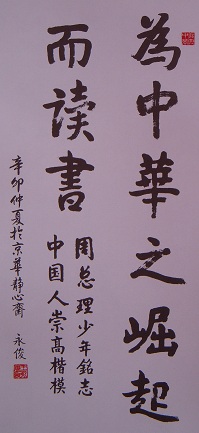 為中華之崛起
而读書
周总理少年銘志
中国人崇高楷模
辛卯仲夏於京華静心齋 永俊